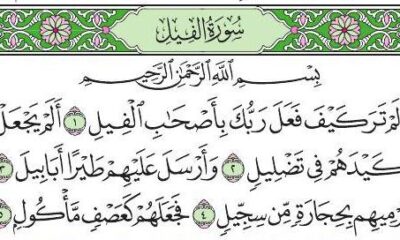 سُورَةُ الفِيلِ
بِسْمِ اللَّهِ الرَّحْمَٰنِ الرَّحِيمِ
لَمْ تَرَ كَيْفَ فَعَلَ رَبُّكَ بِأَصْحَابِ الْفِيلِ ١ أَلَمْ يَجْعَلْ
كَيْدَهُمْ فِي تَضْلِيلٍ ٢ وَأَرْسَلَ عَلَيْهِمْ طَيْرًا أَبَابِيلَ ٣
رْمِيهِم بِحِجَارَةٍ مِّن سِجِّيلٍ ٤ فَجَعَلَهُمْ كَعَصْفٍ مَّأْكُولٍ ٥